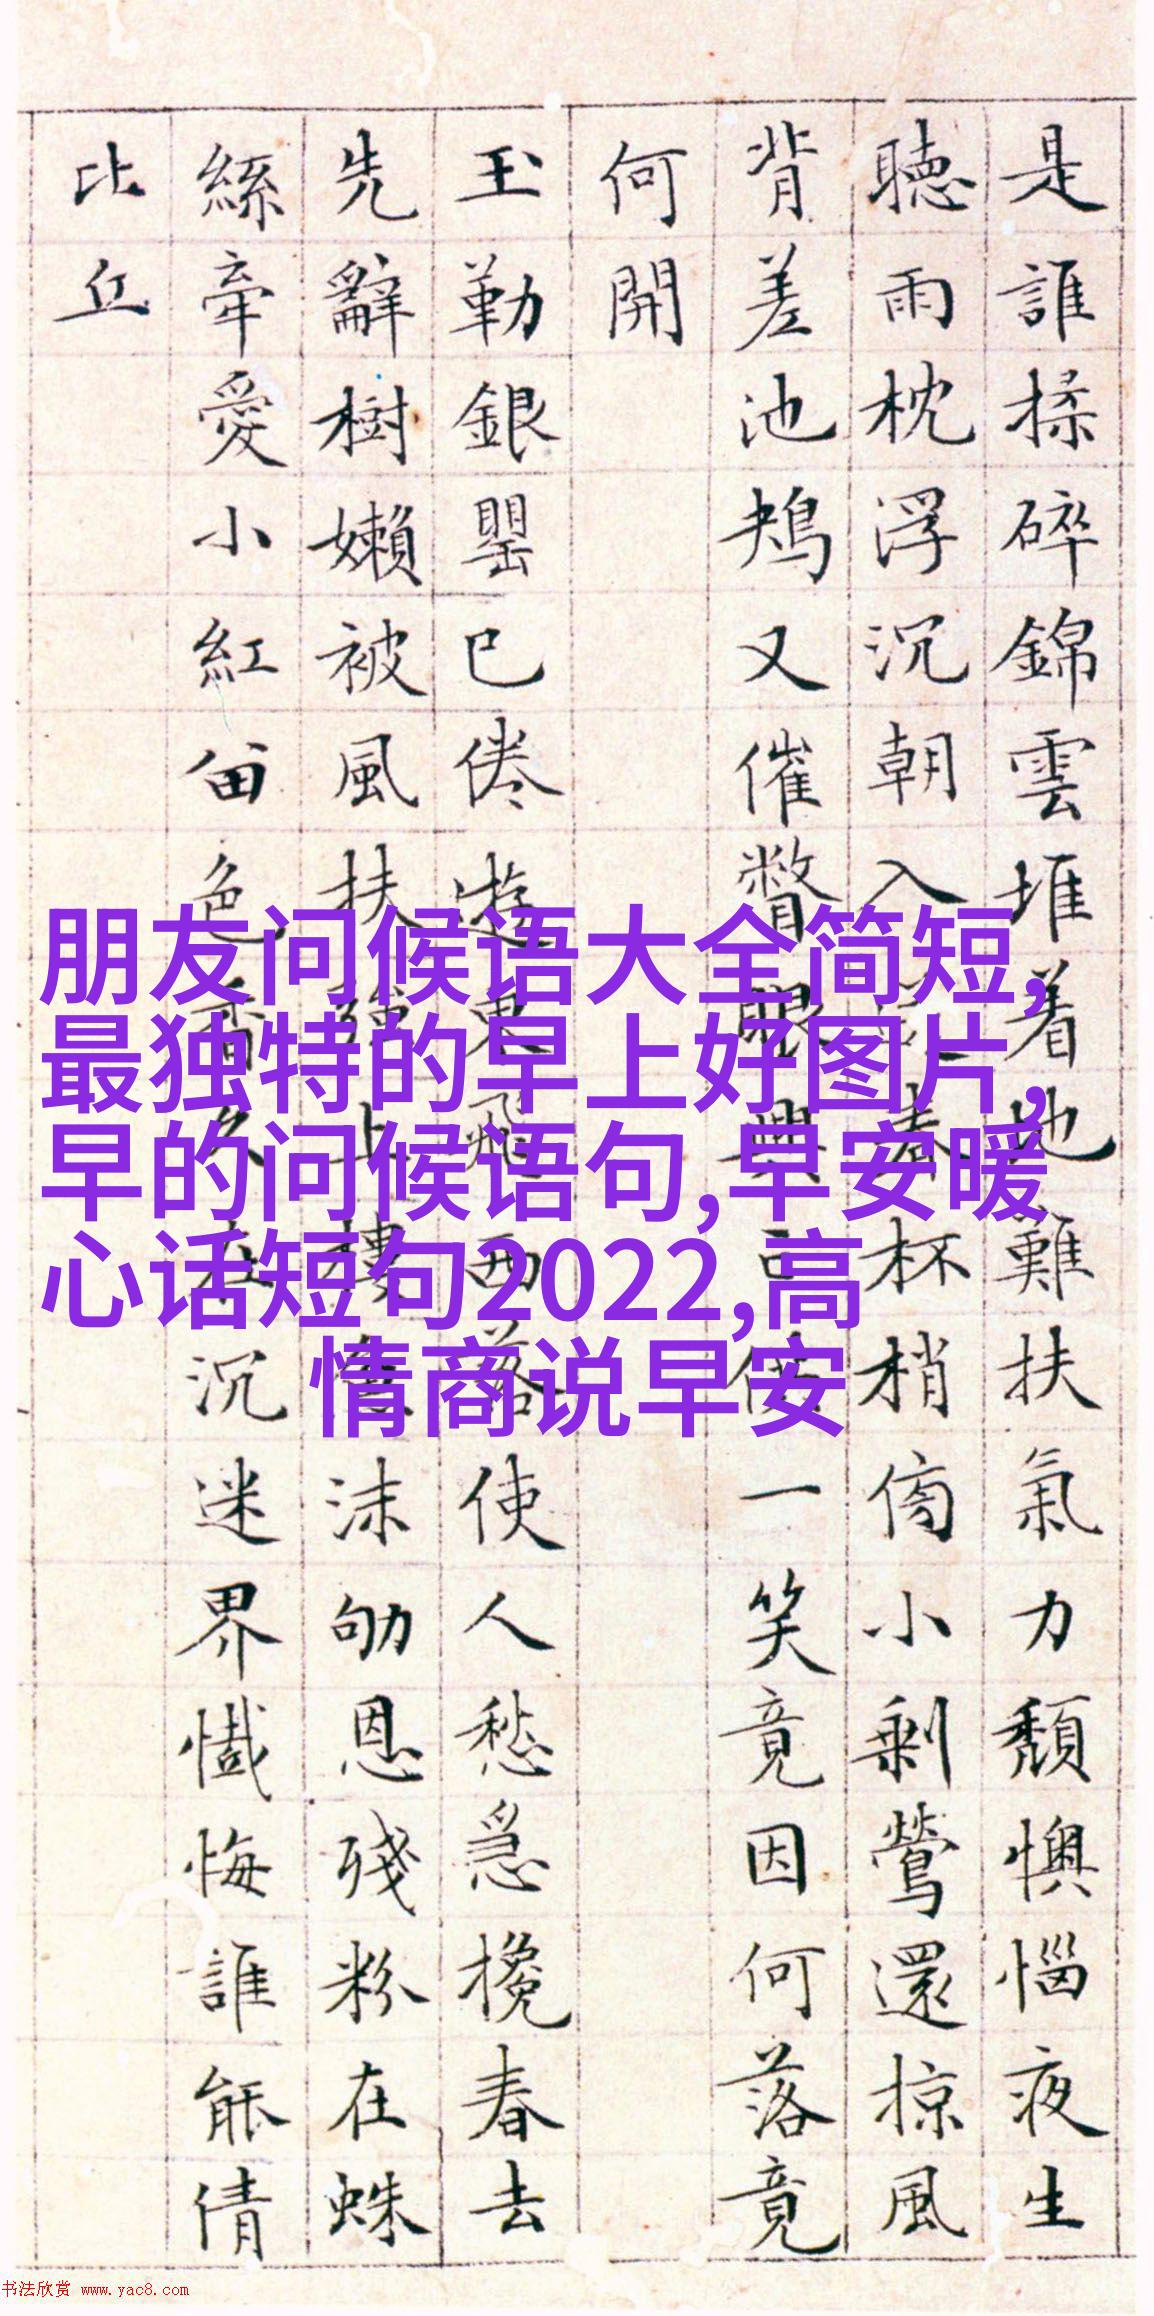 朋友问候语大全简短,
最独特的早上好图片,
早的问候语句,早安暖
心话短句2022,高
情商说早安
是誰揉碎錦雲堆着地難扶氣力頹懊惱夜生
聽雨枕浮沉朝入春杯梢小剩鶯還掠風
背差池鴂又催瞥眼興亡供一笑竟因何落竟
何開
玉勒銀罌已倦遊東飛西落使人愁急攙春去
先辭樹嬾被風扶強上樓魚沫劬恩殘粉在蛛
絲牽愛小紅留色香久在沉迷界懺悔誰能倩
比丘
书法欣赏 www.yac8.com